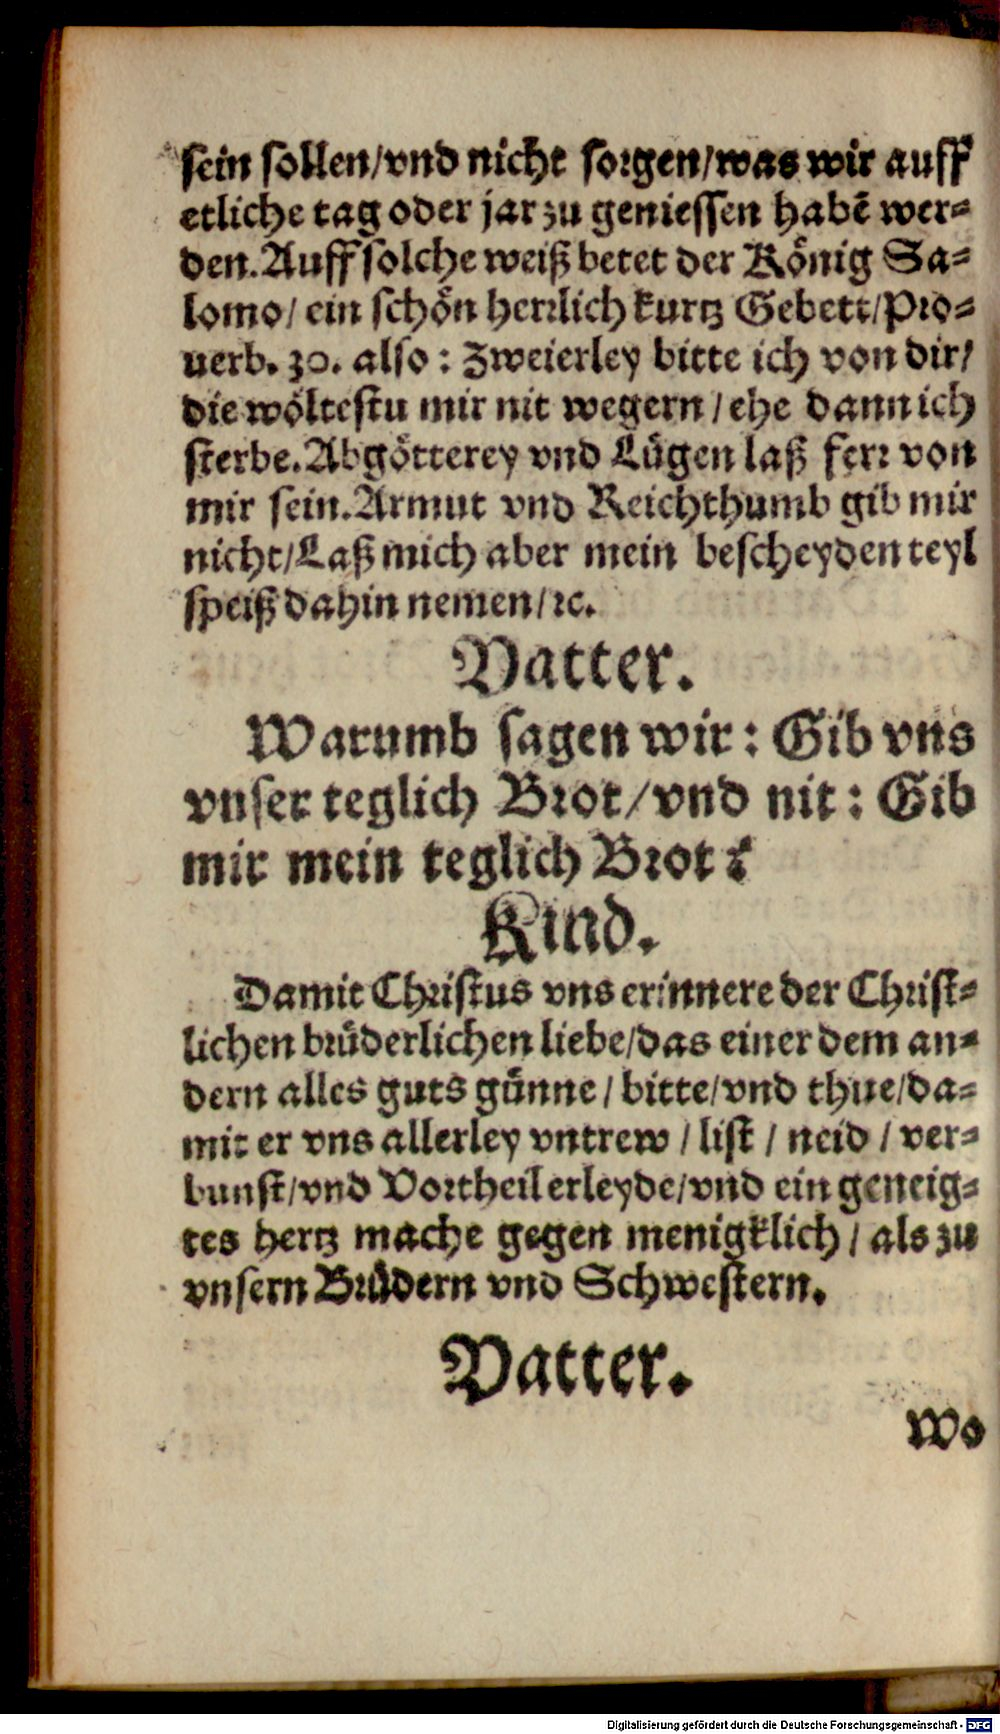 sein sollen/vnd nicht sorgen/was wir auff
etliche tag oder jar zu geniessen habē wer-
den. Auff solche weiß betet der König Sa-
lomo/ ein schön herrlich kurtz Gebett/Pro-
uerb. 30. also: Zweierley bitte ich von dir/
die wöltestu mir nit wegern/ehe dann ich
sterbe. Abgötterey vnd Lügen laß ferr von
mir sein. Armut vnd Reichthumb gib mir
nicht/Laß mich aber mein bescheyden teyl
speiß dahin nemen/ꝛc.
Vatter.
Warumb sagen wir: Gib vns
vnser teglich Brot/vnd nit: Gib
mir mein teglich Brot?
Kind.
Damit Christus vns erinnere der Christ-
lichen brüderlichen liebe/das einer dem an-
dern alles guts günne/bitte/vnd thue/da-
mit er vns allerley vntrew/list/neid/ver-
bunst/vnd Vortheil erleyde/vnd ein geneig-
tes hertz mache gegen menigklich/als zu
vnsern Brüdern vnd Schwestern.
Vatter.
Wo
Digitalisierung gefördert durch die Deutsche Forschungsgemeinschaft - DFG